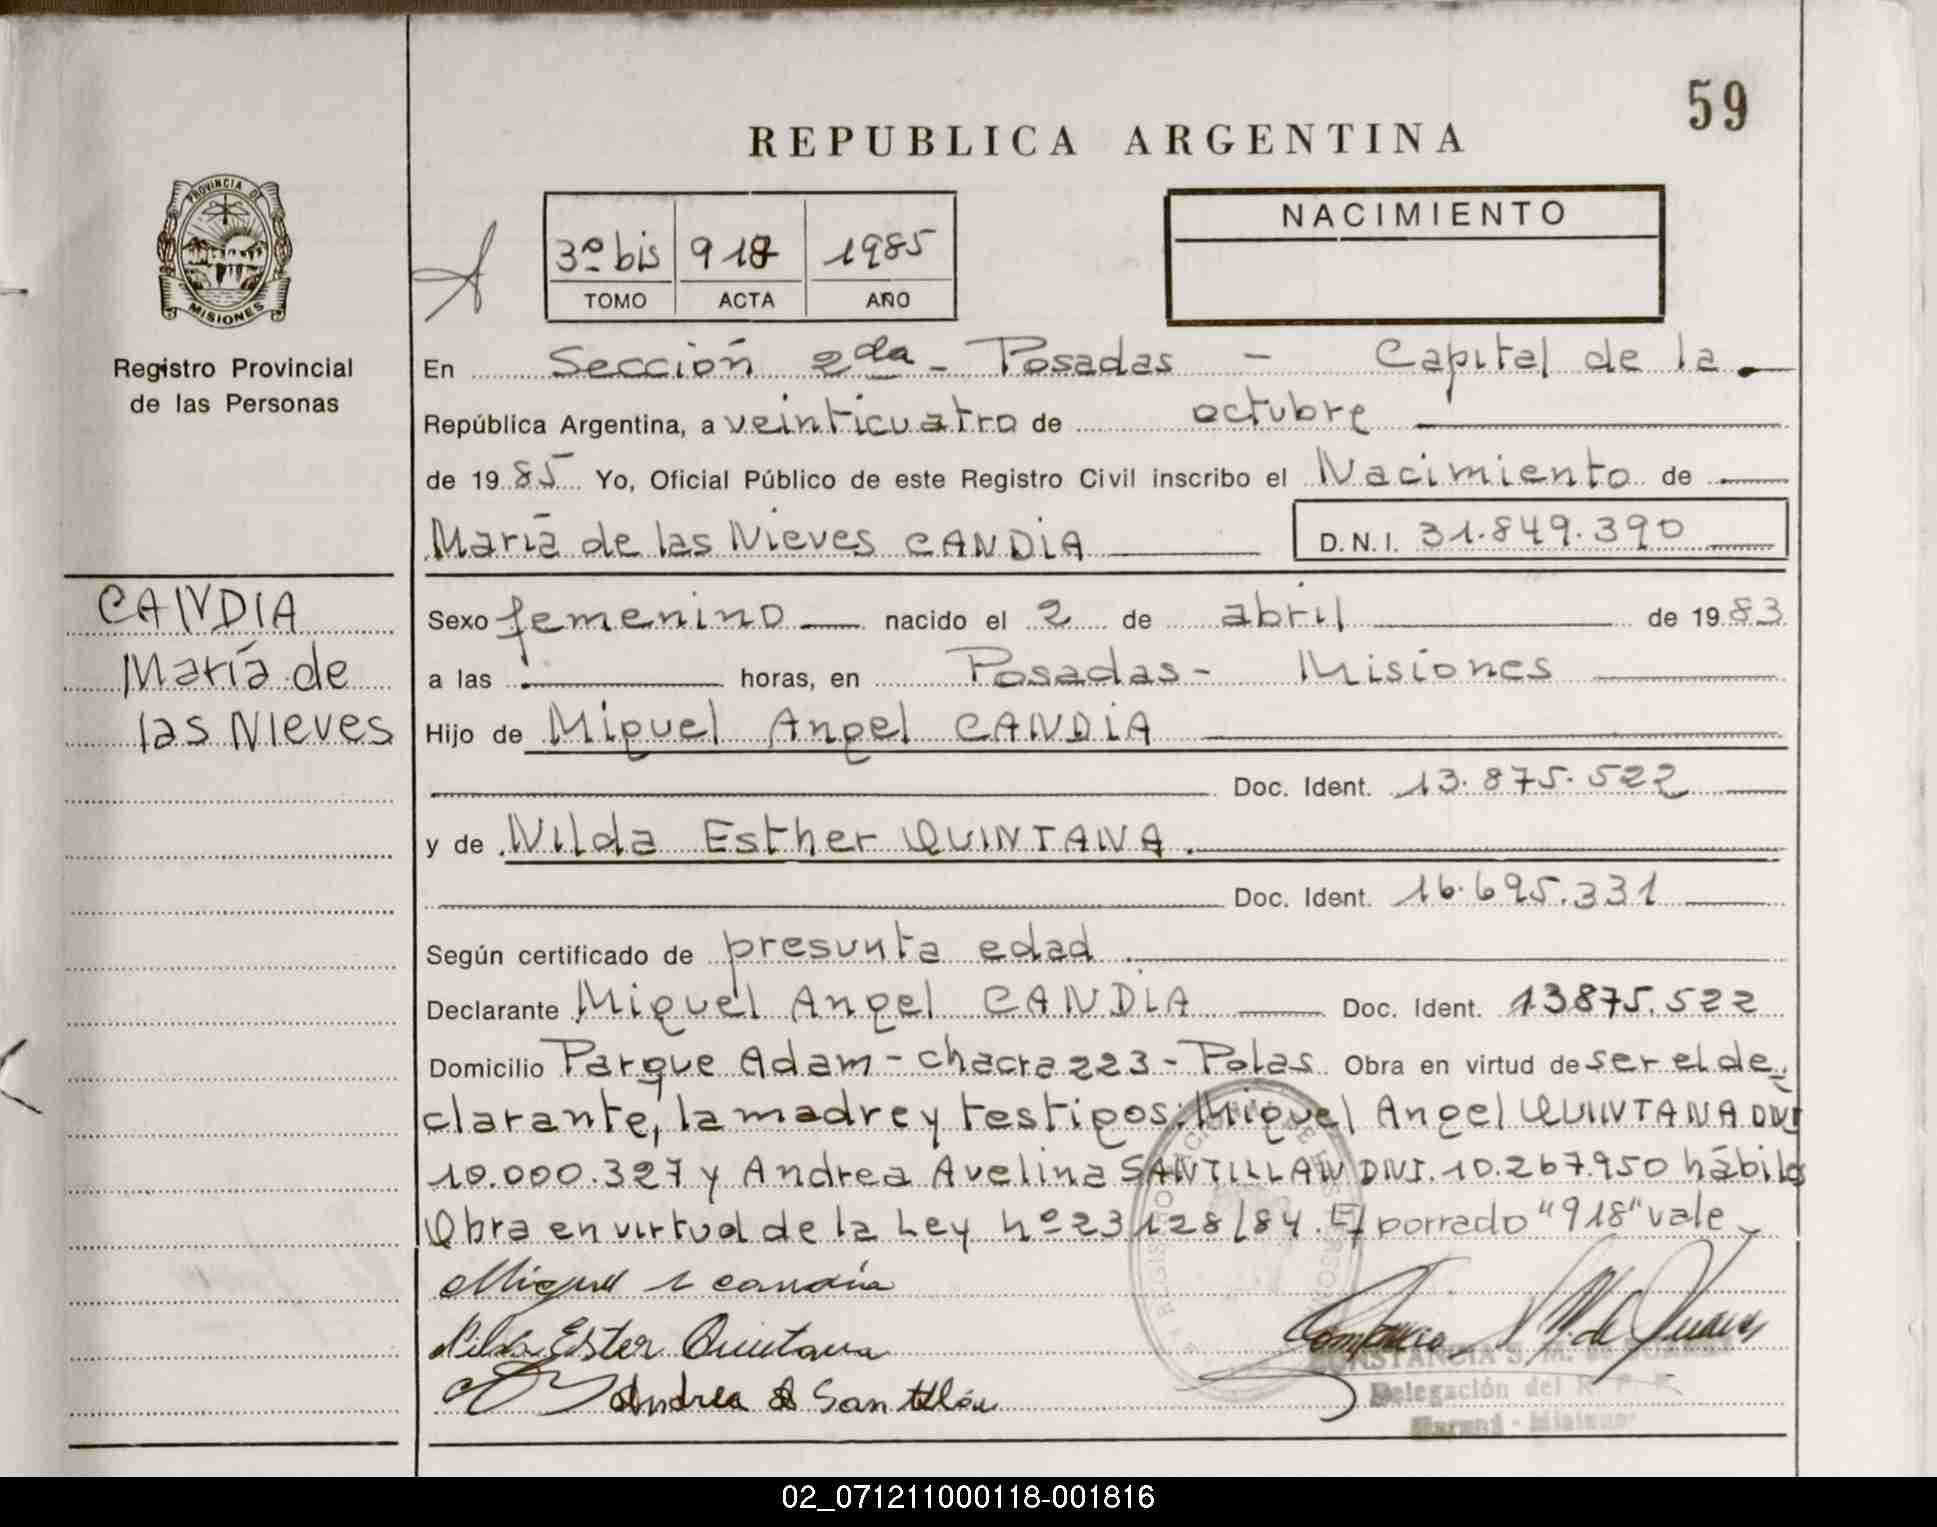 59
REPUBLICA ARGENTINA
PROVINCIA DE
MISIONES
Registro Provincial
de las Personas
3º bis 918 1985
TOMO ACTA AÑO
NACIMIENTO
En Sección 2da - Posadas - Capital de la
República Argentina, a veinticuatro de octubre
de 1985 Yo, Oficial Público de este Registro Civil inscribo el Nacimiento de
María de las Nieves CANDIA D.N.I. 31.849.390
CANDIA
María de
las Nieves
Sexo femenino nacido el 2 de abril de 1983
a las horas, en Posadas - Misiones
Hijo de Miguel Angel CANDIA
Doc. Ident. 13.875.522
y de Nilda Esther QUINTANA.
Doc. Ident. 16.695.331
Según certificado de presunta edad
Declarante Miguel Angel CANDIA Doc. Ident. 13875.522
Domicilio Parque Adam - chacra 223 - Pdas. Obra en virtud de ser el de-
clarante, la madre y testigos: Miguel Angel QUINTANA DNI
10.000.327 y Andrea Avelina SANTILLAN DNI. 10.267.950 hábiles
Obra en virtud de la Ley nº 23128/84. El borrado "918" vale
Miguel A candia
Nilda Ester Quintana
Andrea A Santillán
CONSTANCIA S. M. de
Delegación del R. P. P.
02_071211000118-001816